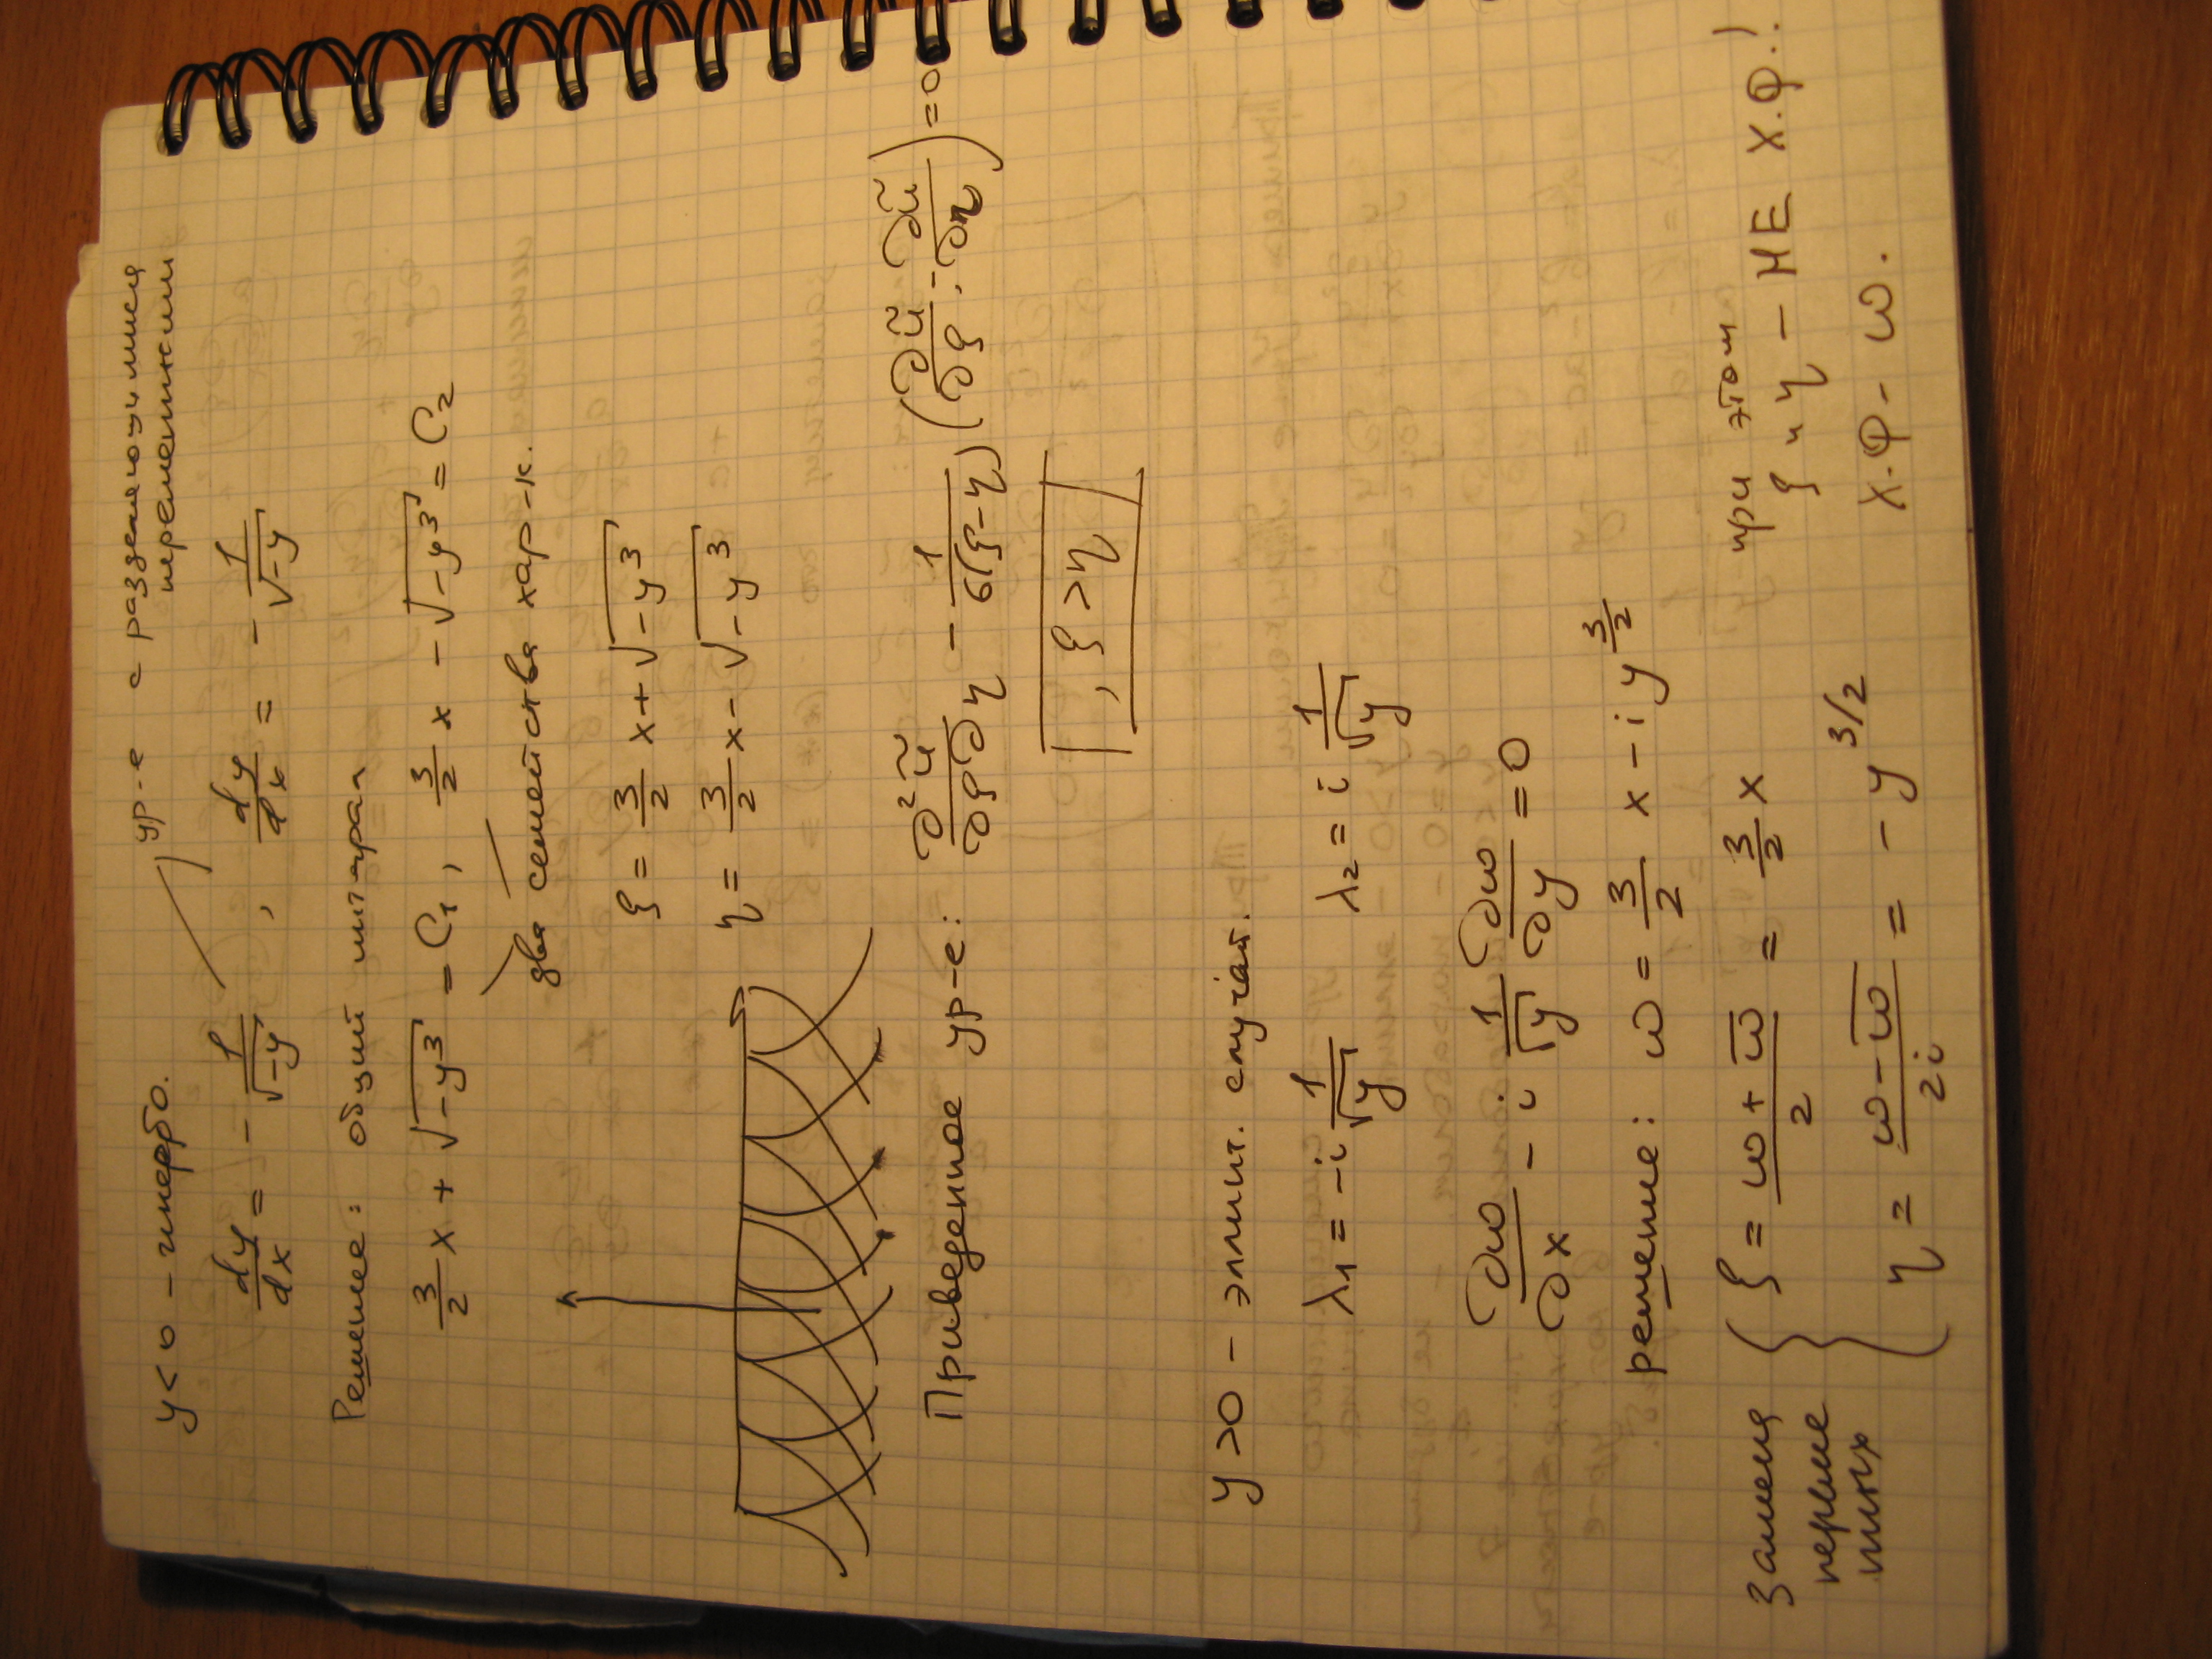 ур-е с разделяющимися
переменными
y<0 – гипербо.
dy/dx = - 1/√-y , dy/dx = - 1/√-y
Решение: общий интеграл
3/2 x + √-y³ = C₁, 3/2 x - √-y³ = C₂
два семейства хар-к.
ξ = 3/2 x + √-y³
η = 3/2 x - √-y³
Приведенное ур-е: ∂²ũ/∂ξ∂η - 1/6(ξ-η) (∂ũ/∂ξ - ∂ũ/∂η) = 0
, ξ > η
y>0 – эллипт. случай.
λ₁ = -i 1/√y λ₂ = i 1/√y
∂ω/∂x - i 1/√y ∂ω/∂y = 0
решение: ω = 3/2 x - i y^3/2
замена
переме
нных
{ ξ = ω + ω̅/2 = 3/2 x
η = ω - ω̅/2i = - y^3/2
при этом
ξ и η – НЕ Х.Ф.!
Х.Ф – ω.